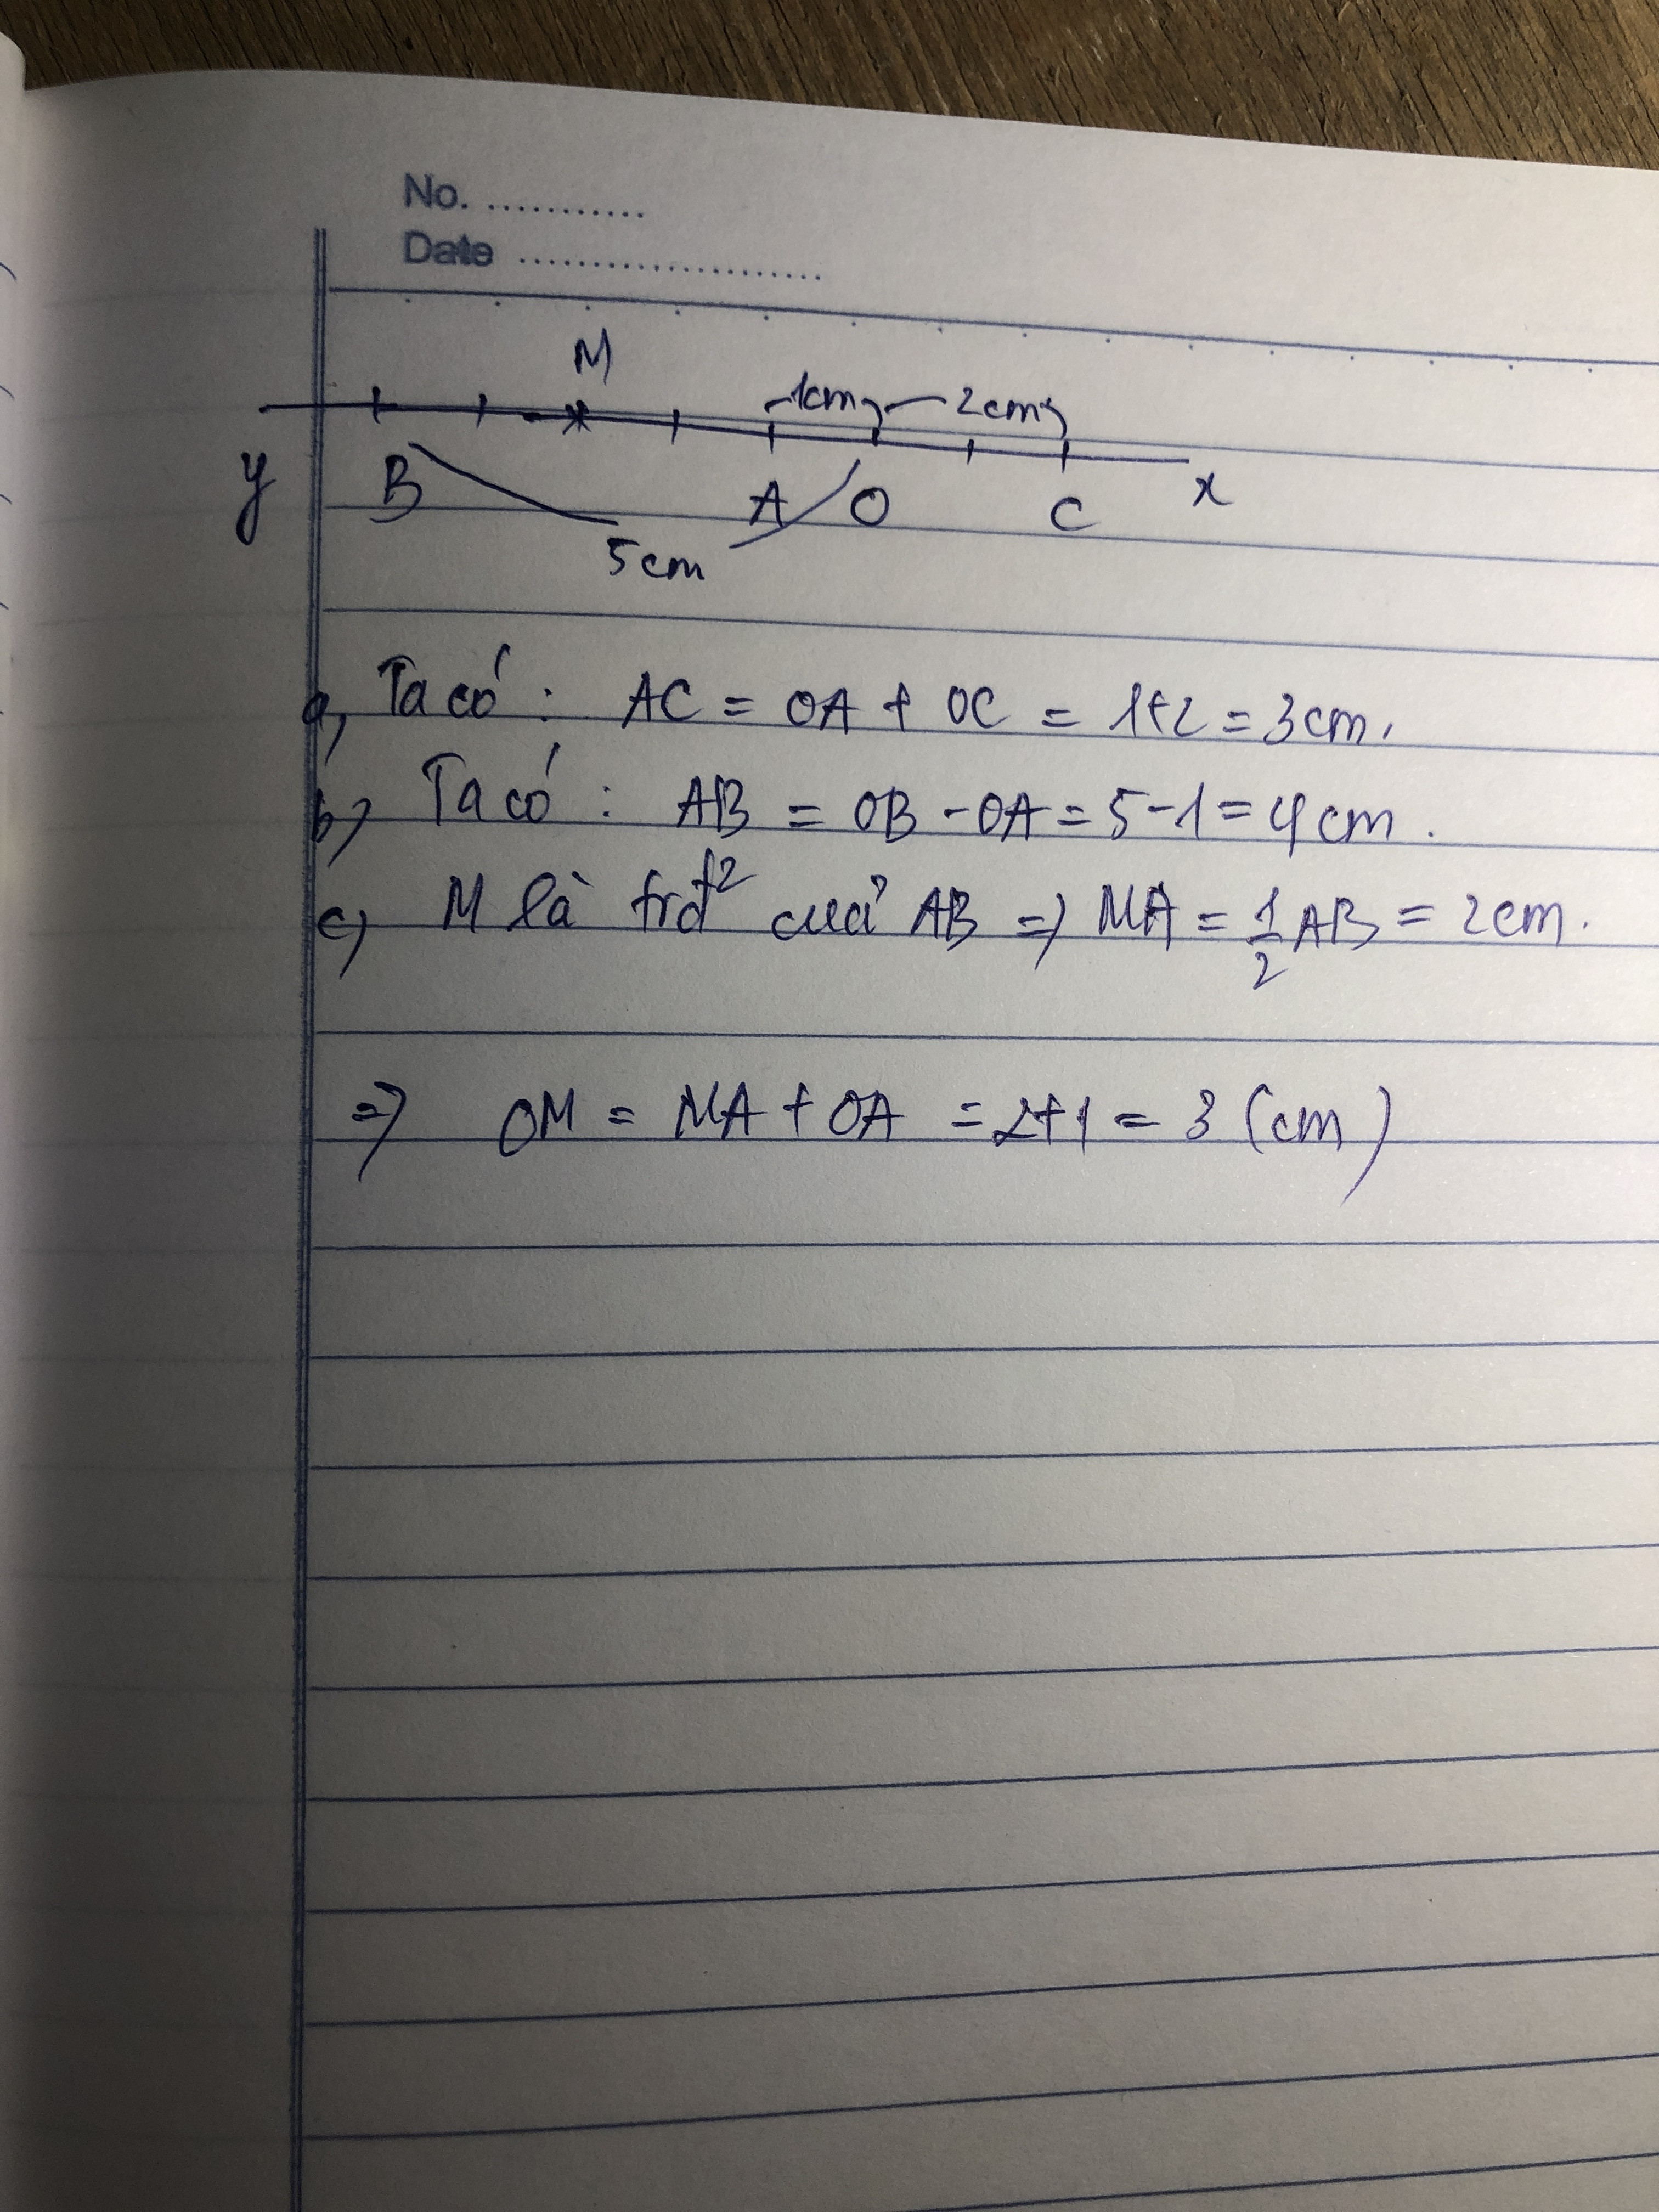 No. ...........
Date ......................
M
1cm 2cm
y B A O C x
5cm
a, Ta có : AC = OA + OC = 1+2 = 3cm.
b) Ta có : AB = OB - OA = 5-1 = 4cm.
c) M là trđ² của AB => MA = 1/2 AB = 2cm.
=> OM = MA + OA = 2+1 = 3 (cm)